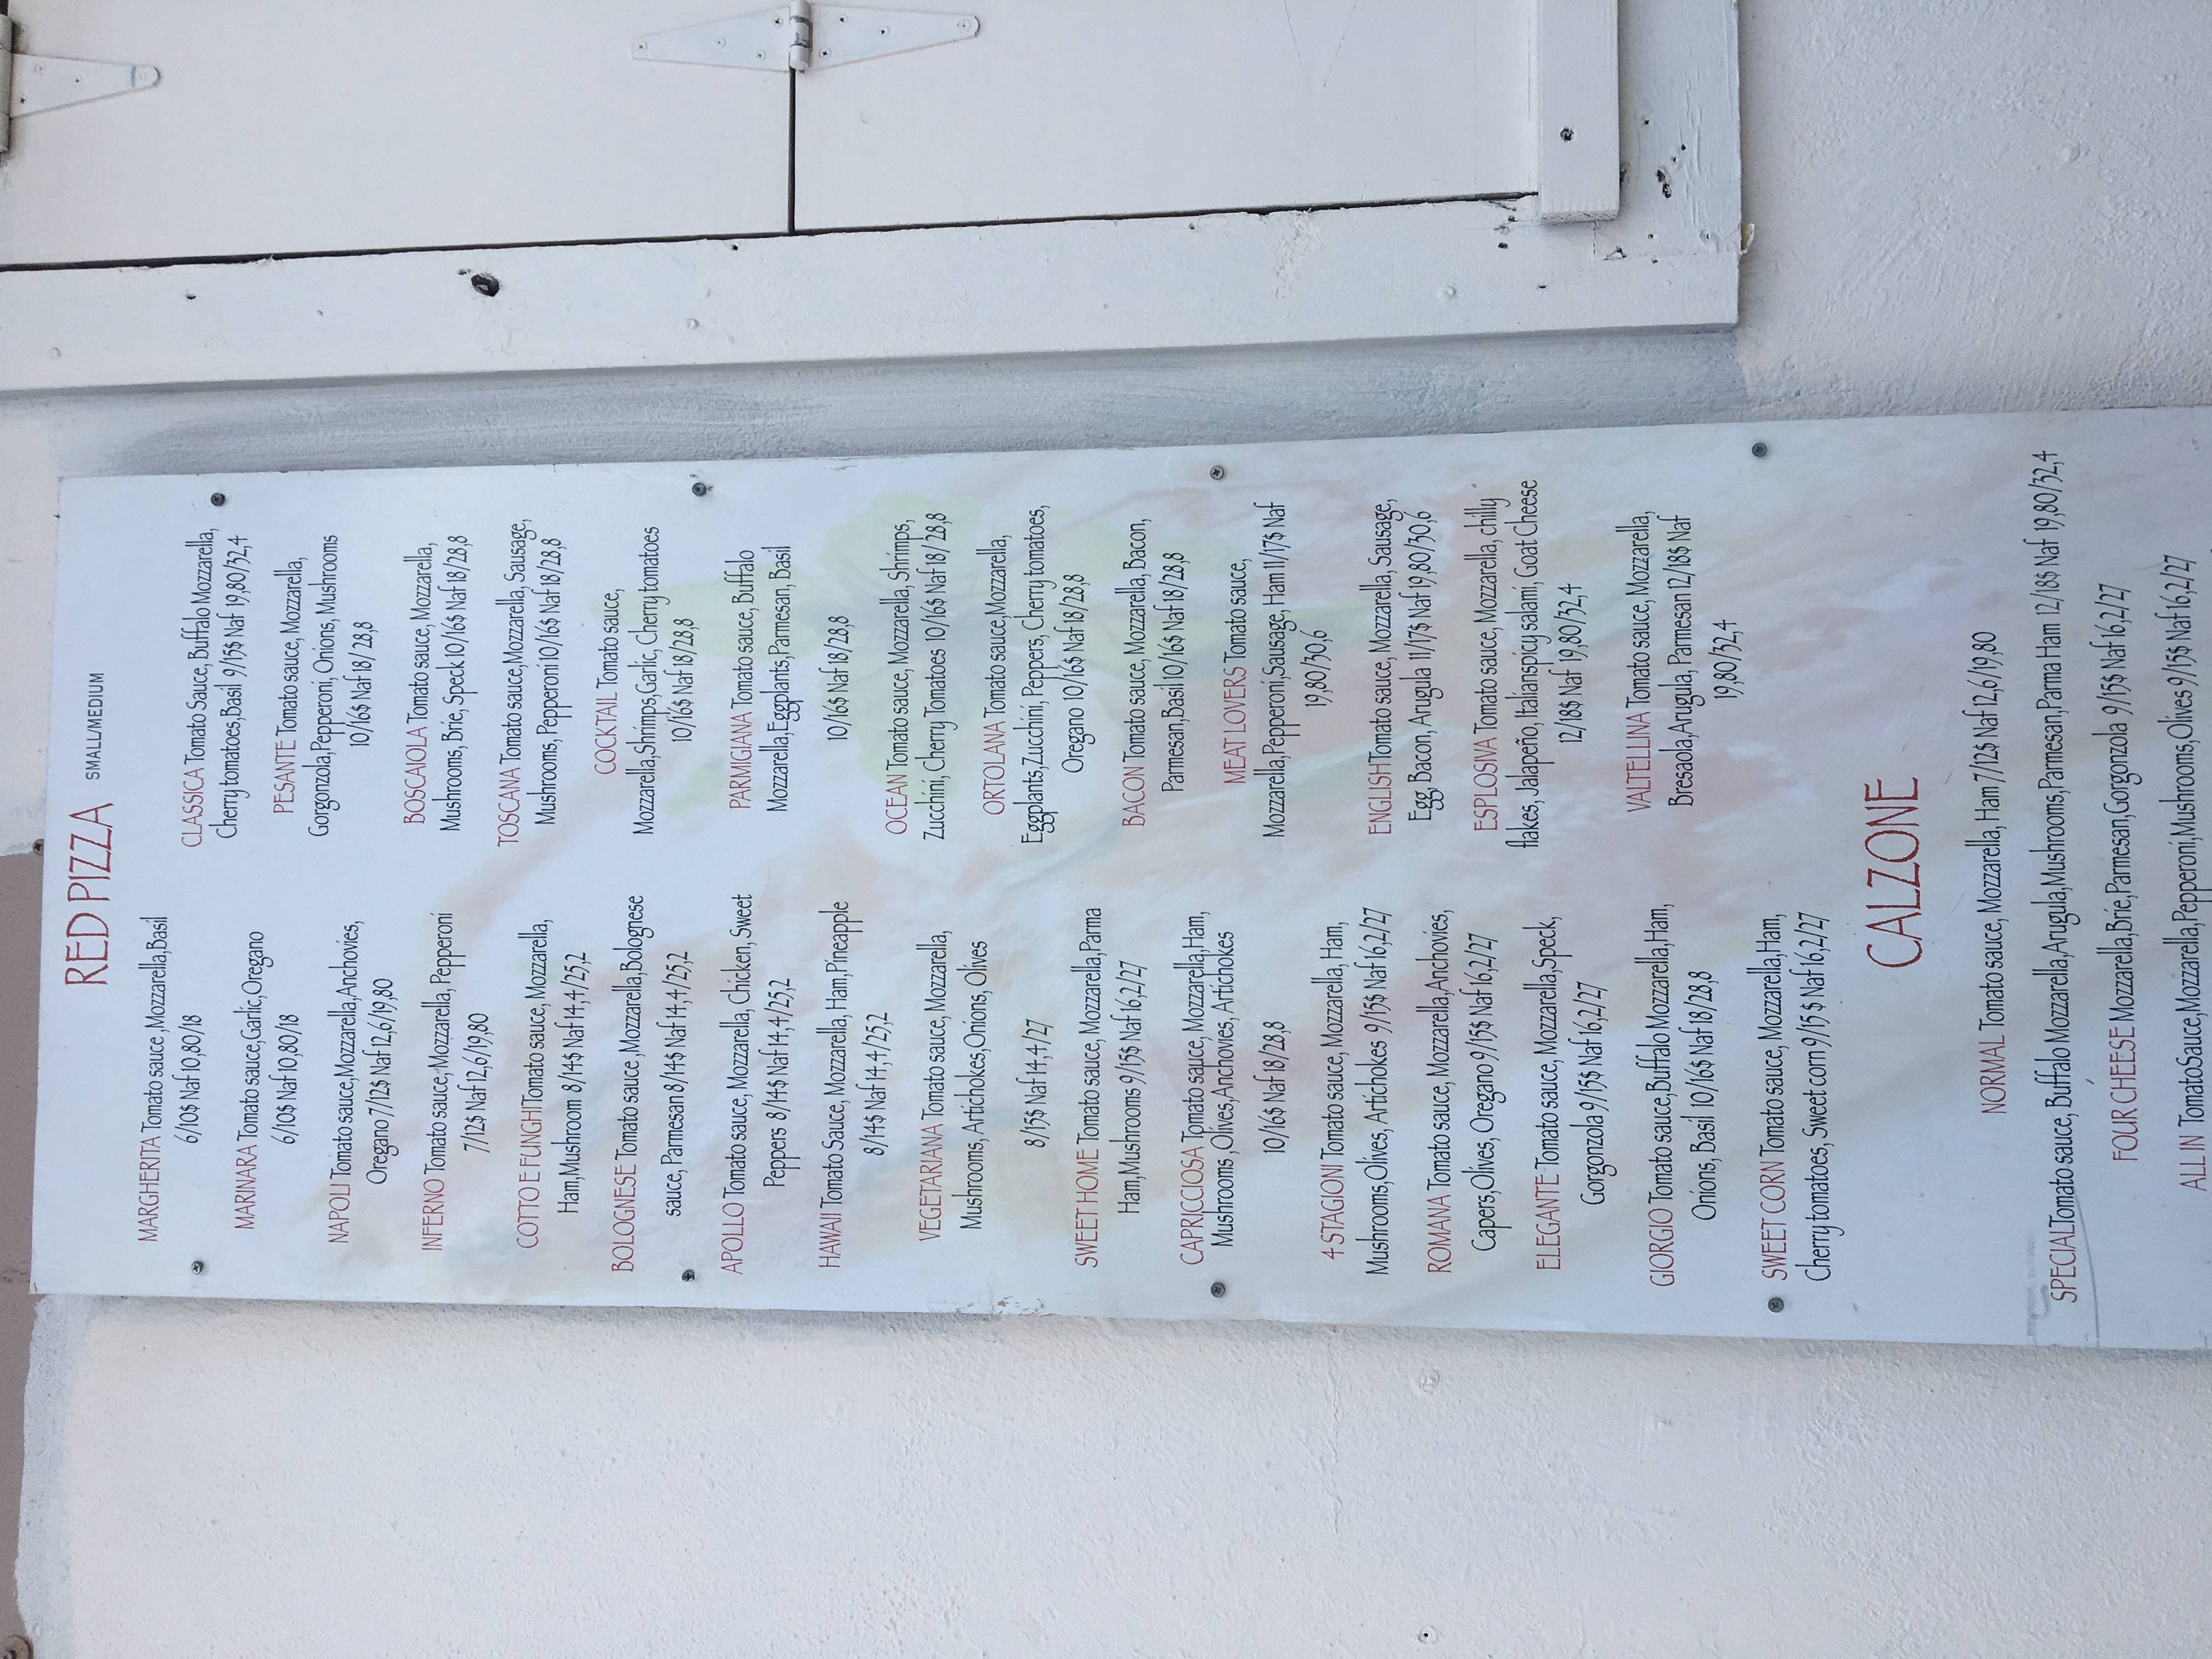 RED PIZZA SMALL/MEDIUM
MARGHERITA Tomato sauce,Mozzarella,Basil
6/10$ Naf 10,80/18
MARINARA Tomato sauce,Garlic,Oregano
6/10$ Naf 10,80/18
NAPOLI Tomato sauce,Mozzarella,Anchovies,
Oregano 7/12$ Naf 12,6/19,80
INFERNO Tomato sauce,Mozzarella,Pepperoni
7/12$ Naf 12,6/19,80
COTTO E FUNGHI Tomato sauce, Mozzarella,
Ham,Mushroom 8/14$ Naf 14,4/25,2
BOLOGNESE Tomato sauce ,Mozzarella,Bolognese
sauce, Parmesan 8/14$ Naf 14,4/25,2
APOLLO Tomato sauce, Mozzarella, Chicken, Sweet
Peppers 8/14$ Naf 14,4/25,2
HAWAII Tomato Sauce, Mozzarella, Ham,Pineapple
8/14$ Naf 14,4/25,2
VEGETARIANA Tomato sauce, Mozzarella,
Mushrooms, Artichokes,Onions, Olives
8/15$ Naf 14,4/27
SWEET HOME Tomato sauce, Mozzarella,Parma
Ham,Mushrooms 9/15$ Naf 16,2/27
CAPRICCIOSA Tomato sauce, Mozzarella,Ham,
Mushrooms ,Olives,Anchovies, Artichokes
10/16$ Naf 18/28,8
4 STAGIONI Tomato sauce, Mozzarella, Ham,
Mushrooms,Olives, Artichokes 9/15$ Naf 16,2/27
ROMANA Tomato sauce, Mozzarella,Anchovies,
Capers,Olives, Oregano 9/15$ Naf 16,2/27
ELEGANTE Tomato sauce, Mozzarella,Speck,
Gorgonzola 9/15$ Naf 16,2/27
GIORGIO Tomato sauce,Buffalo Mozzarella,Ham,
Onions, Basil 10/16$ Naf 18/28,8
SWEET CORN Tomato sauce, Mozzarella,Ham,
Cherry tomatoes, Sweet corn 9/15 $ Naf 16,2/27
CLASSICA Tomato Sauce, Buffalo Mozzarella,
Cherry tomatoes,Basil 9/15$ Naf 19,80/32,4
PESANTE Tomato sauce, Mozzarella,
Gorgonzola,Pepperoni, Onions, Mushrooms
10/16$ Naf 18/ 28,8
BOSCAIOLA Tomato sauce, Mozzarella,
Mushrooms, Brie, Speck 10/16$ Naf 18/28,8
TOSCANA Tomato sauce,Mozzarella, Sausage,
Mushrooms, Pepperoni 10/16$ Naf 18/28,8
COCKTAIL Tomato sauce,
Mozzarella,Shrimps,Garlic, Cherry tomatoes
10/16$ Naf 18/28,8
PARMIGIANA Tomato sauce, Buffalo
Mozzarella,Eggplants,Parmesan, Basil
10/16$ Naf 18/28,8
OCEAN Tomato sauce, Mozzarella, Shrimps,
Zucchini, Cherry Tomatoes 10/16$ Naf 18/ 28,8
ORTOLANA Tomato sauce,Mozzarella,
Eggplants,Zucchini, Peppers, Cherry tomatoes,
Oregano 10/16$ Naf 18/28,8
BACON Tomato sauce, Mozzarella, Bacon,
Parmesan,Basil 10/16$ Naf 18/28,8
MEAT LOVERS Tomato sauce,
Mozzarella,Pepperoni,Sausage, Ham 11/17$ Naf
19,80/30,6
ENGLISH Tomato sauce, Mozzarella, Sausage,
Egg, Bacon, Arugula 11/17$ Naf 19,80/30,6
ESPLOSIVA Tomato sauce, Mozzarella, chilly
flakes, Jalapeño, Italian spicy salami, Goat Cheese
12/18$ Naf 19,80/32,4
VALTELLINA Tomato sauce, Mozzarella,
Bresaola,Arugula, Parmesan 12/18$ Naf
19,80/32,4
CALZONE
NORMAL Tomato sauce, Mozzarella, Ham 7/12$ Naf 12,6/19,80
SPECIAL Tomato sauce, Buffalo Mozzarella,Arugula,Mushrooms,Parmesan,Parma Ham 12/18$ Naf 19,80/32,4
FOUR CHEESE Mozzarella,Brie,Parmesan,Gorgonzola 9/15$ Naf 16,2/27
ALL IN Tomato Sauce,Mozzarella,Pepperoni,Mushrooms,Olives 9/15$ Naf 16,2/27